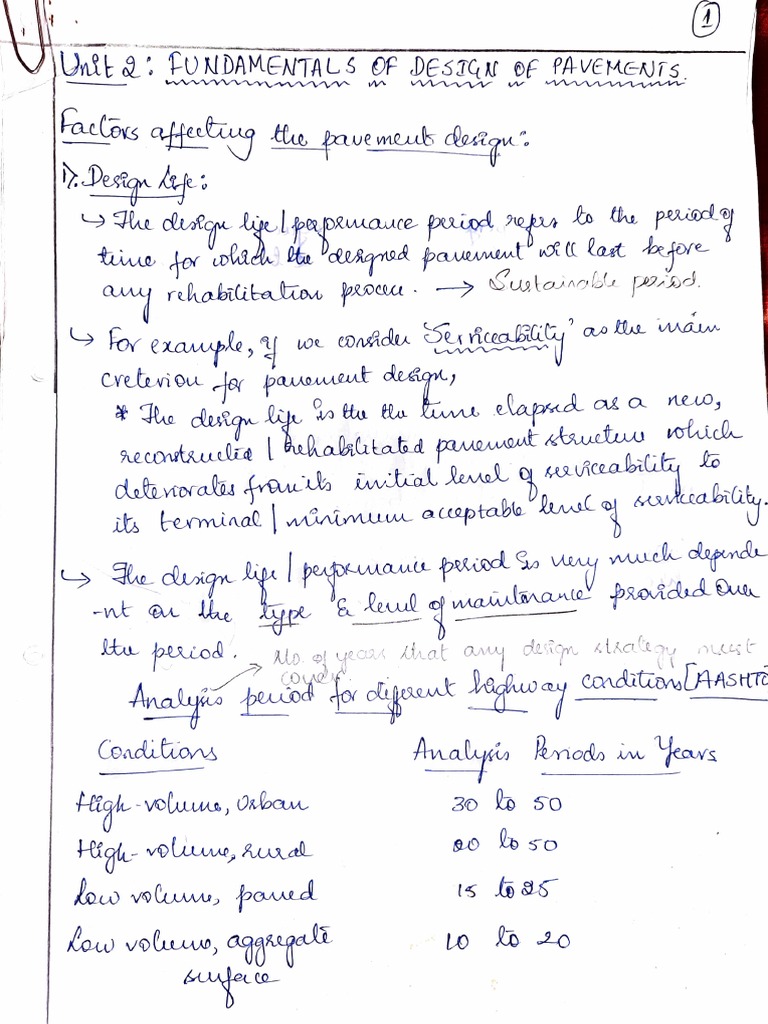 1
Unit 2: FUNDAMENTALS OF DESIGN OF PAVEMENTS.
Factors affecting the pavement design:
1). Design Life:
↳ The design life / performance period refers to the period of
time for which the designed pavement will last before
any rehabilitation process. → Sustainable period.
↳ For example, if we consider 'Serviceability' as the main
creterion for pavement design,
* The design life is the the time elapsed as a new,
reconstructed / rehabilitated pavement structure which
deteriorates from its initial level of serviceability to
its terminal / minimum acceptable level of serviceability.
↳ The design life / performance period is very much depende
-nt on the type & level of maintenance provided over
the period. No. of years that any design strategy must
cover.
Analysis period for different highway conditions [AASHTO
Conditions Analysis Periods in Years
High-volume, urban 30 to 50
High-volume, rural 20 to 50
Low volume, paved 15 to 25
Low volume, aggregate 10 to 20
surface